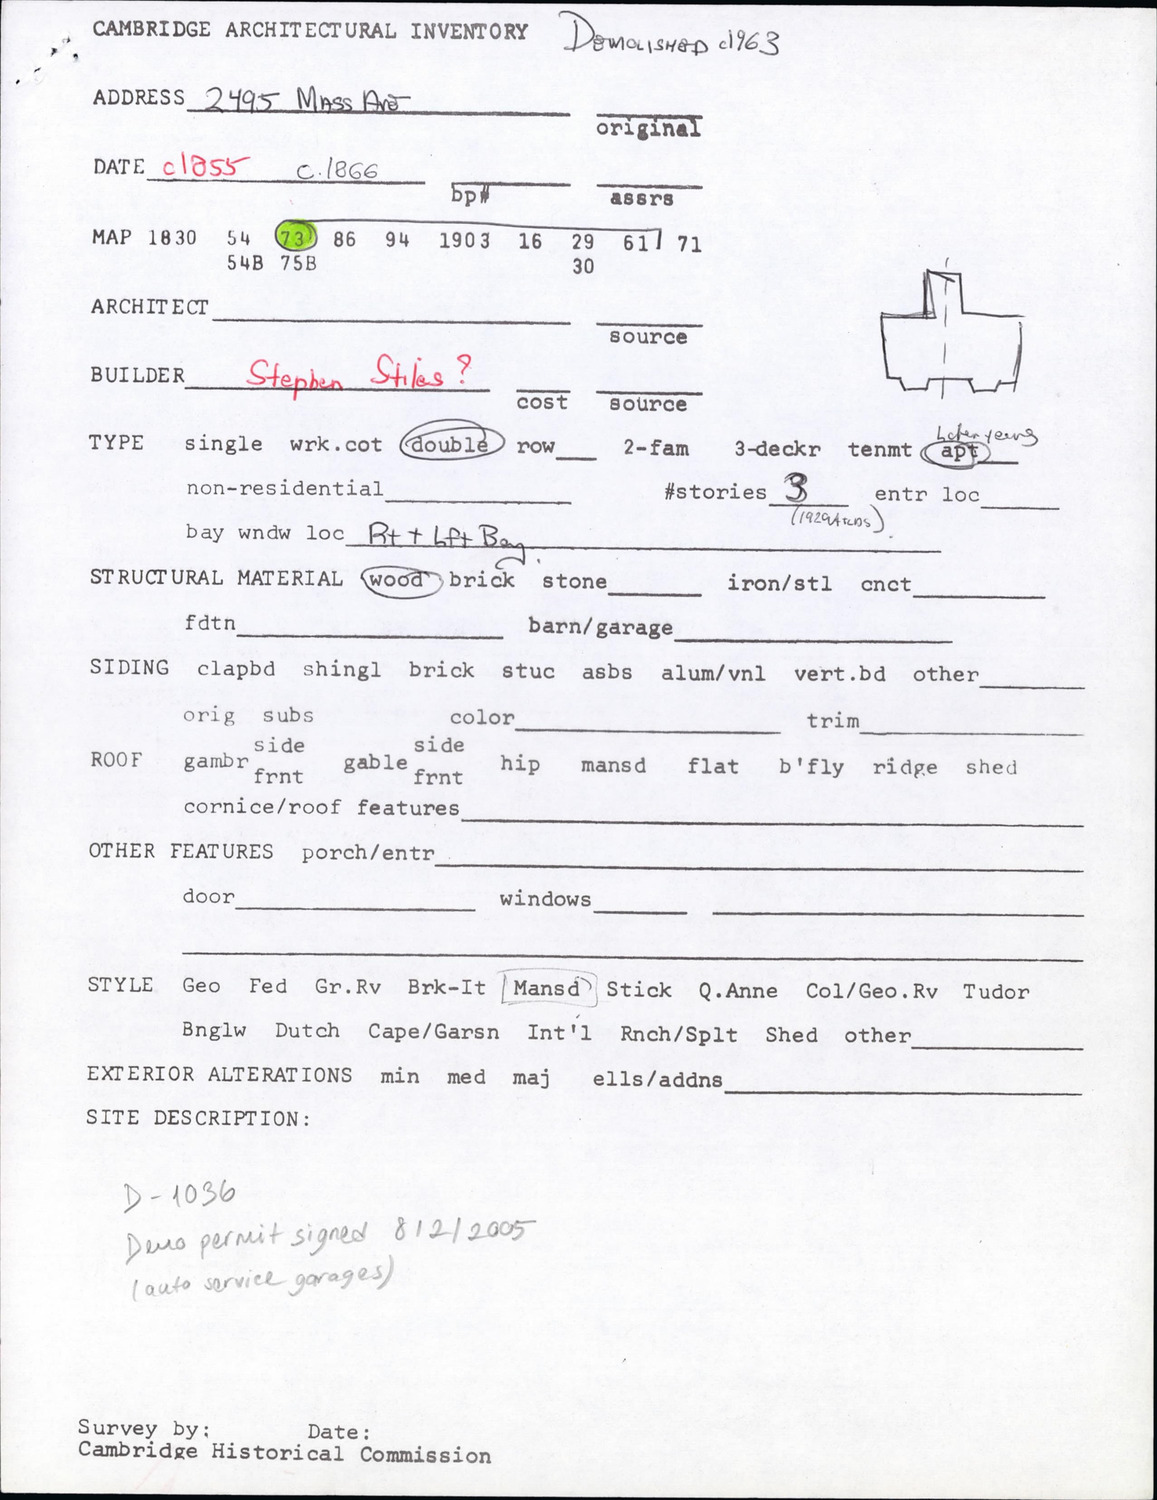 CAMBRIDGE ARCHITECTURAL INVENTORY Demolished c1963
ADDRESS 2495 Mass Ave
original
DATE c1855 c.1866
bp# assrs
MAP 1830 54 73 86 94 1903 16 29 61 71
54B 75B 30
ARCHITECT
source
BUILDER Stephen Stiles?
cost source
Later years
TYPE single wrk.cot double row 2-fam 3-deckr tenmt apt
non-residential #stories 3 entr loc
bay wndw loc Rt + Lft Bay
STRUCTURAL MATERIAL wood brick stone iron/stl cnct
fdtn barn/garage
SIDING clapbd shingl brick stuc asbs alum/vnl vert.bd other
orig subs color trim
side side
ROOF gambr gable hip mansd flat b'fly ridge shed
frnt frnt
cornice/roof features
OTHER FEATURES porch/entr
door windows
STYLE Geo Fed Gr.Rv Brk-It Mansd Stick Q.Anne Col/Geo.Rv Tudor
Bnglw Dutch Cape/Garsn Int'l Rnch/Splt Shed other
EXTERIOR ALTERATIONS min med maj ells/addns
SITE DESCRIPTION:
D-1036
Demo permit signed 8/2/2005
(auto service garages)
Survey by: Date:
Cambridge Historical Commission